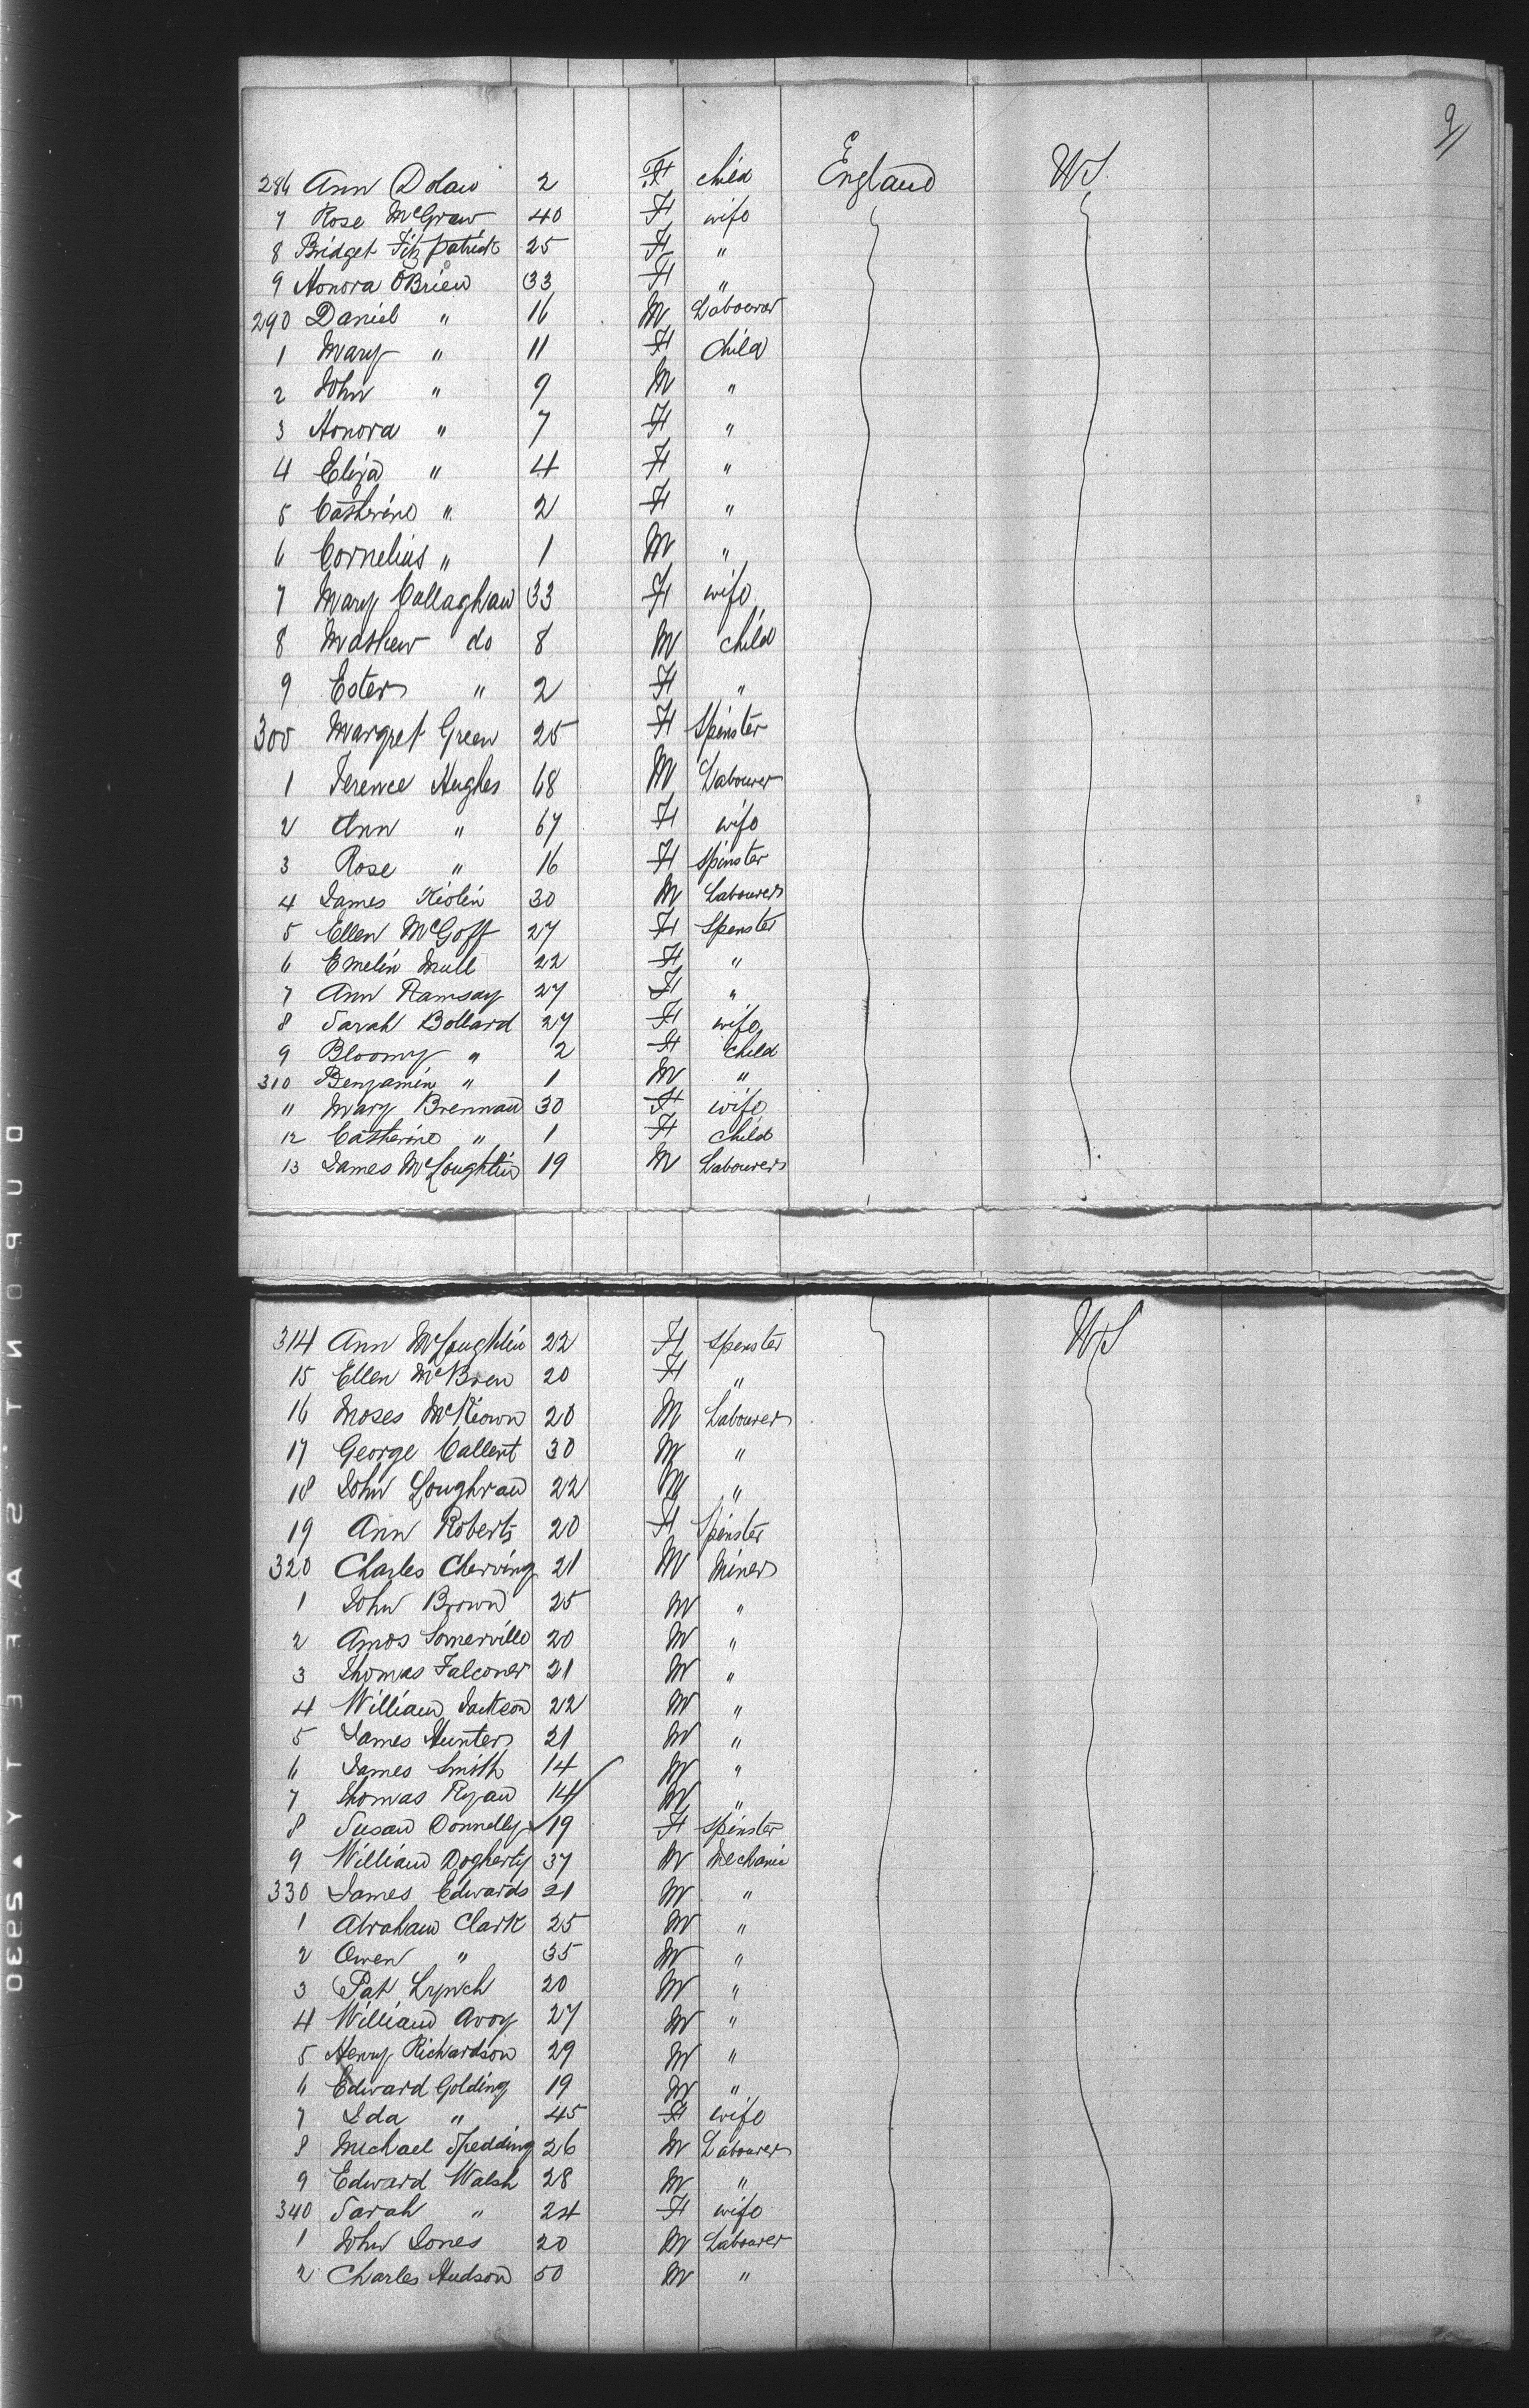 9
286 Ann Dolan 2 F child England US
7 Rose McGraw 40 F wife
8 Bridget Fitzpatrick 25 F "
9 Honora OBrien 33 F "
290 Daniel " 16 M Labourer
1 Mary " 11 F child
2 John " 9 M "
3 Honora " 7 F "
4 Eliza " 4 F "
5 Catherine " 2 F "
6 Cornelius " 1 M "
7 Mary Callaghan 33 F wife
8 Mathew do 8 M child
9 Ester " 2 F "
300 Margret Green 25 F Spinster
1 Terence Hughes 68 M Labourer
2 Ann " 67 F wife
3 Rose " 16 F Spinster
4 James 30 M Labourer
5 Ellen McGoff 27 F Spinster
6 Emelin Mull 22 F "
7 Ann Ramsay 27 F "
8 Sarah Bollard 27 F wife
9 Bloomy " 2 F child
310 Benjamin " 1 M "
" Mary Brennan 30 F wife
12 Catherine " 1 F child
13 James McLoughlin 19 M Labourer
314 Ann McLoughlin 22 F Spinster US
15 Ellen McBren 20 F "
16 Moses McKeown 20 M Labourer
17 George Callent 30 M "
18 John Loughran 22 M "
19 Ann Roberts 20 F Spinster
320 Charles Cherving 21 M Miner
1 John Brown 25 M "
2 Amos Somerville 20 M "
3 Thomas Falconer 21 M "
4 William Jackson 22 M "
5 James Hunter 21 M "
6 James Smith 14 M "
7 Thomas Ryan 14 M "
8 Susan Donnelly 19 F Spinster
9 William Dogherty 37 M Mechanic
330 James Edwards 21 M "
1 Abraham Clark 25 M "
2 Owen " 35 M "
3 Pat Lynch 20 M "
4 William Avoy 27 M "
5 Henry Richardson 29 M "
6 Edward Golding 19 M "
7 Ida " 45 F wife
8 Michael Spedding 26 M Labourer
9 Edward Walsh 28 M "
340 Sarah " 24 F wife
1 John Jones 20 M Labourer
2 Charles Hudson 50 M "